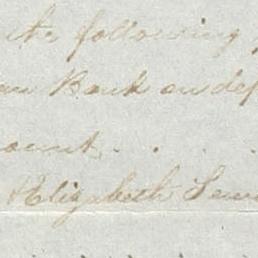 the following
Bank on dep
ount . . .
Elizabeth